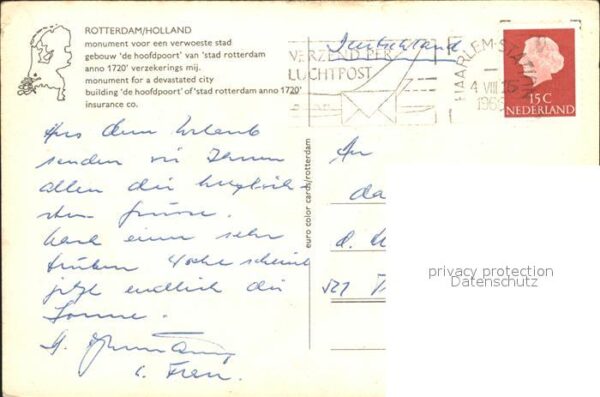 ROTTERDAM/HOLLAND
monument voor een verwoeste stad
gebouw 'de hoofdpoort' van 'stad rotterdam
anno 1720' verzekerings mij.
monument for a devastated city
building 'de hoofdpoort' of 'stad rotterdam anno 1720'
insurance co.
Deutschland
VERZEND PER
LUCHTPOST
HAARLEM-STATION
4 VIII 16
196
15 C
NEDERLAND
euro color cards/rotterdam
Aus dem Urlaub
senden wir Ihnen
allen die herzlich-
sten Grüsse.
Nach einer sehr
trüben Woche scheint
jetzt endlich die
Sonne.
u. Frau
An
d.
privacy protection
Datenschutz